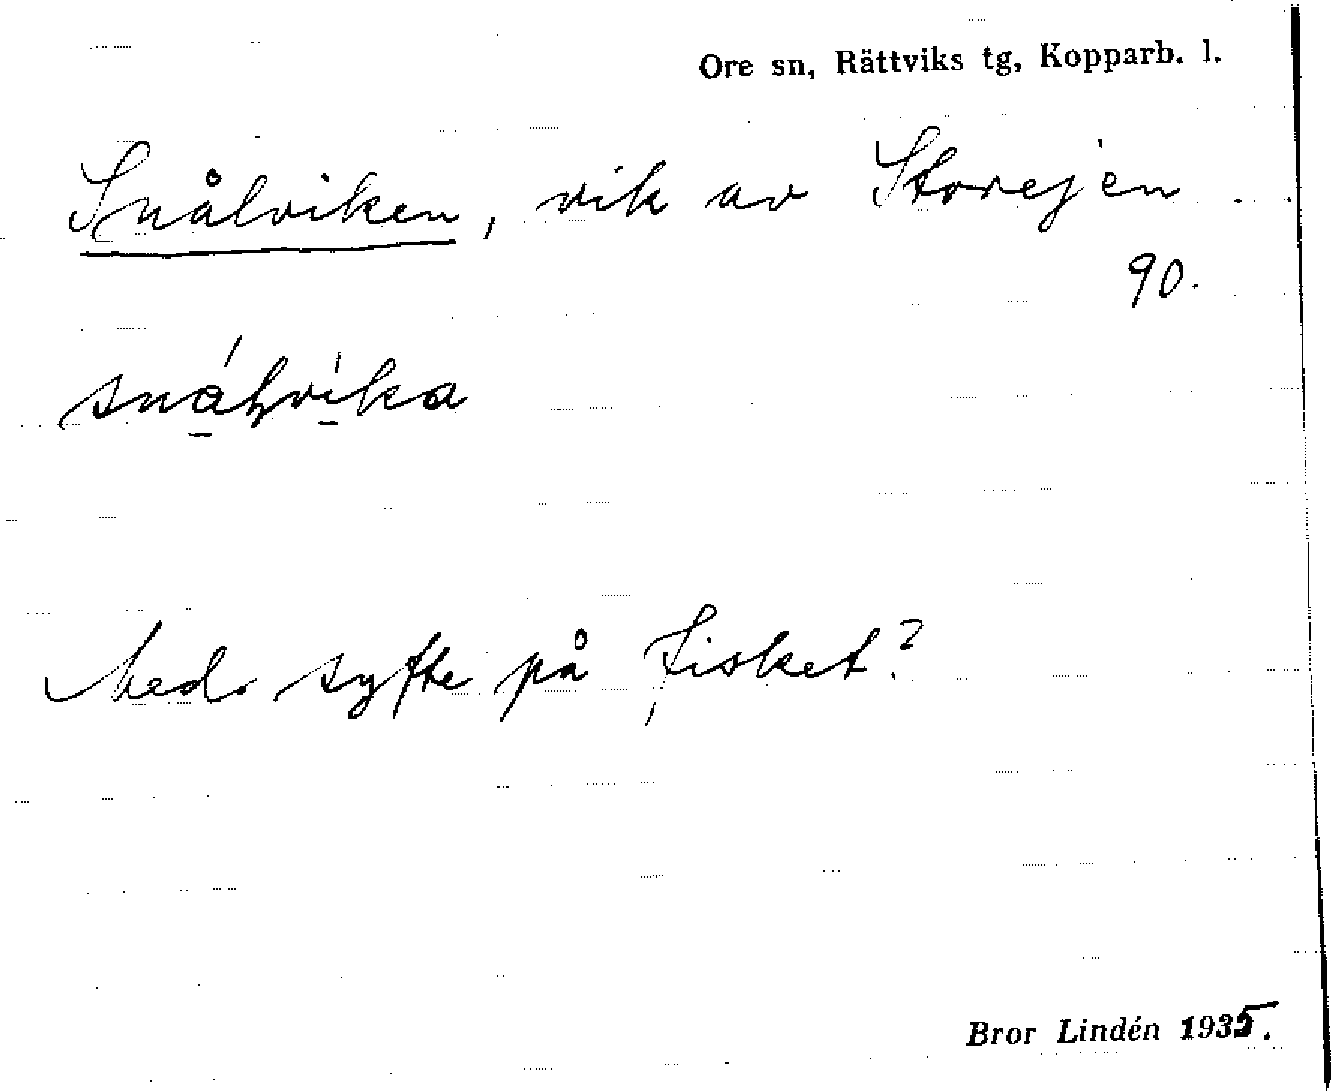 Ore sn, Rättviks tg, Kopparb. l.
Snålviken, vik av Storejen
90.
snáḷvíka
Med syfte på fisket?
Bror Lindén 1935.